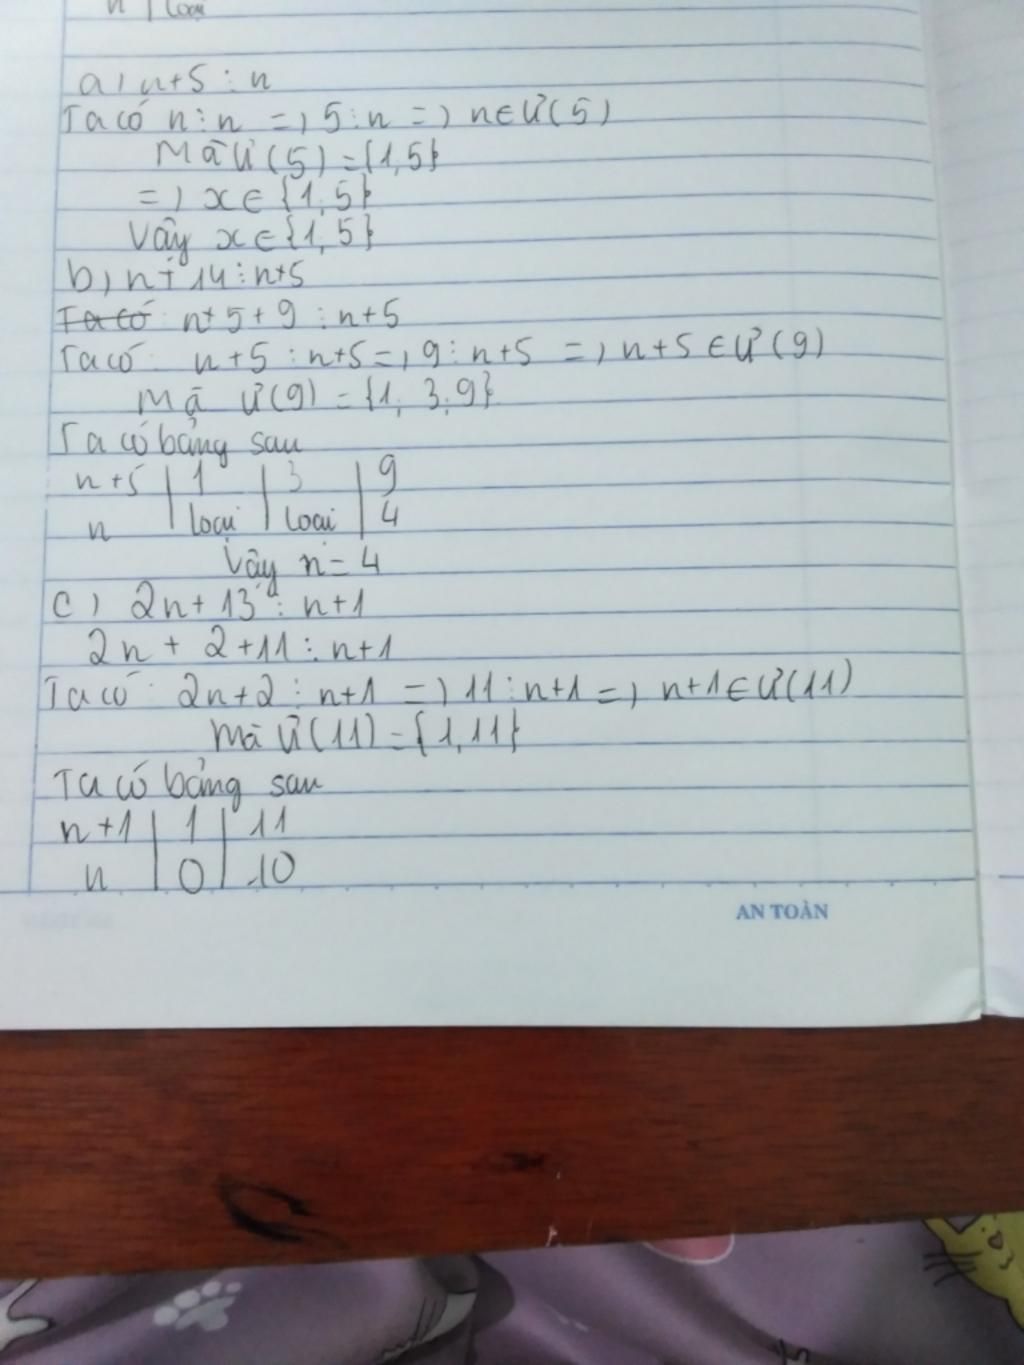 n | loại
a, n+5 ⋮ n
Ta có n ⋮ n => 5 ⋮ n => n ∈ Ư(5)
Mà Ư(5) = {1, 5}
=> x ∈ {1, 5}
Vậy x ∈ {1, 5}
b, n + 14 ⋮ n+5
Ta có n+5+9 ⋮ n+5
Ta có: n+5 ⋮ n+5 => 9 ⋮ n+5 => n+5 ∈ Ư(9)
Mà Ư(9) = {1, 3, 9}
Ta có bảng sau
n+5 | 1 | 3 | 9
n | loại | loại | 4
Vậy n = 4
c) 2n+13 ⋮ n+1
2n + 2 + 11 ⋮ n+1
Ta có: 2n+2 ⋮ n+1 => 11 ⋮ n+1 => n+1 ∈ Ư(11)
Mà Ư(11) = {1, 11}
Ta có bảng sau
n+1 | 1 | 11
n | 0 | 10
AN TOÀN